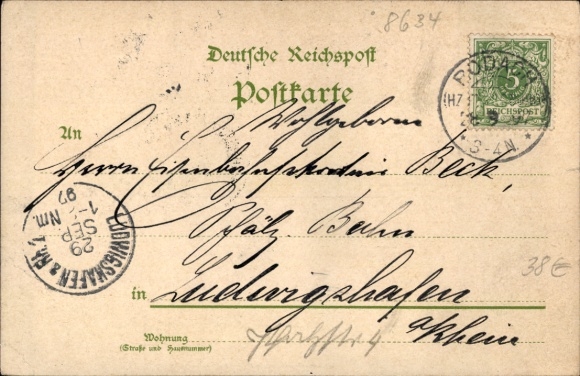 8634
Deutsche Reichspost
Postkarte
5
REICHSPOST
RODACH
(HZ
* 3-4N. *
An Wohlgeboren
Herrn Eisenbahnsekretär Beck,
Pfälz. Bahn
LUDWIGSHAFEN a. Rh. 1.
29
SEP
97
1- Nm.
38€
in Ludwigshafen
a/Rhein
Wohnung
(Straße und Hausnummer)